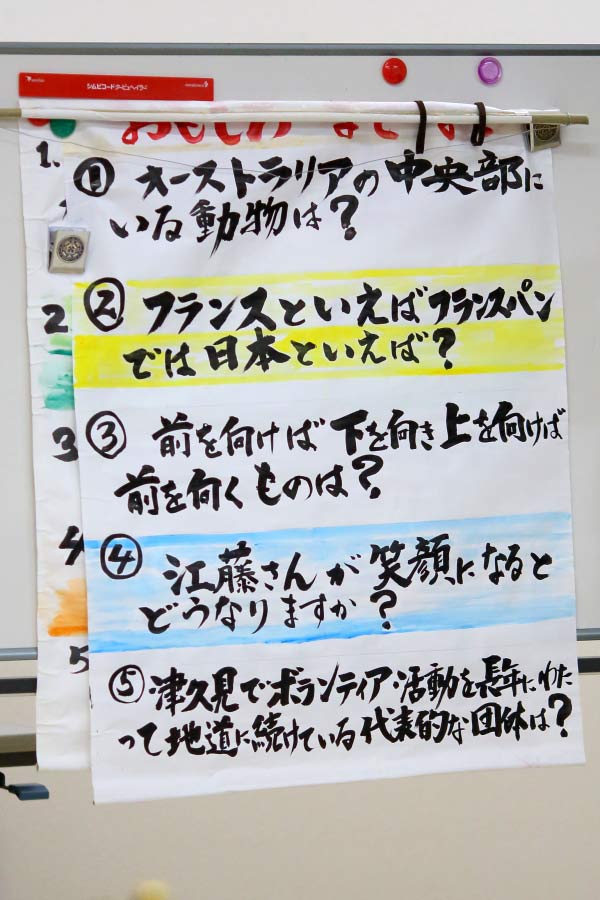 シムビコードタービュヘイラー
1.
① オーストラリアの中央部に
いる動物は?
2
② フランスといえばフランスパン
では日本といえば?
3
③ 前を向けば下を向き上を向けば
前を向くものは?
4
④ 江藤さんが笑顔になると
どうなりますか?
5
⑤ 津久見でボランティア・活動を長年にわた
って地道に続けている代表的な団体は?